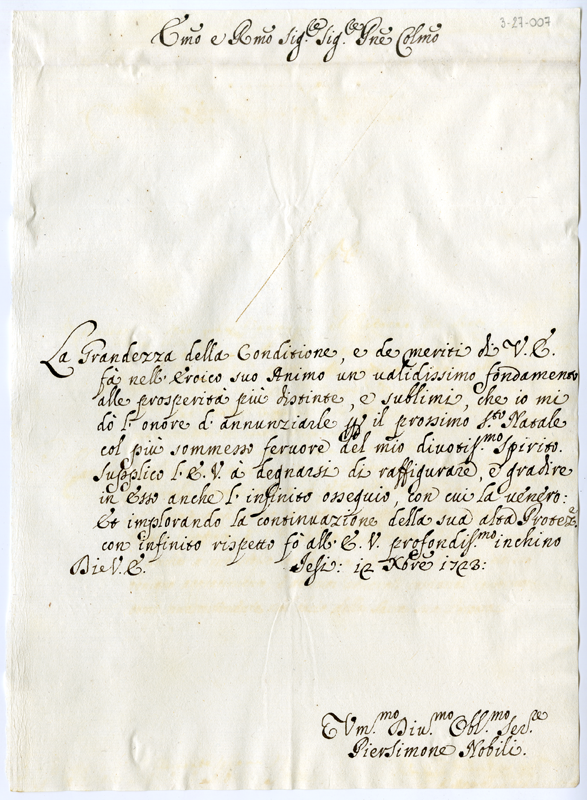 3-27-007
Emo e Rmo Sig.re Sig.re Pne Colmo
La Grandezza della Conditione, e de meriti di V. E.
fà nell' Eroico suo Animo un validissimo fondamento
alle prosperità più distinte, e sublimi, che io mi
dò l' onore d' annunziarle p il prossimo S.to Natale
col più sommesso fervore del mio divotis.mo Spirito.
Supplico l' E. V. à degnarsi di raffigurare, e gradire
in Esso anche l' infinito ossequio, con cui la venero:
Et implorando la continuazione della sua alta Protez.e
con infinito rispetto fò all' E. V. profondis.mo inchino
Di V. E. Jesi: 12 Xbre 1723:
Vm.mo Div.mo Obl.mo Ser.re
Piersimone Nobili.